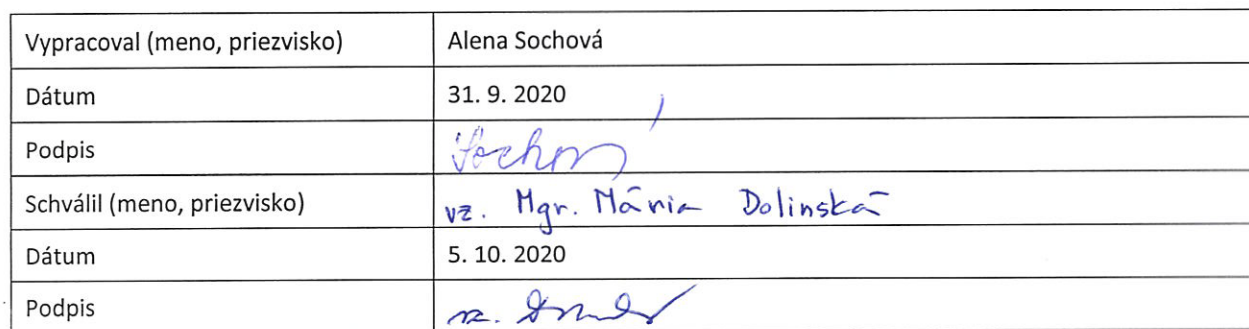 Vypracoval (meno, priezvisko) Alena Sochová
Dátum 31. 9. 2020
Podpis
Schválil (meno, priezvisko) vz. Mgr. Mária Dolinská
Dátum 5. 10. 2020
Podpis vz.